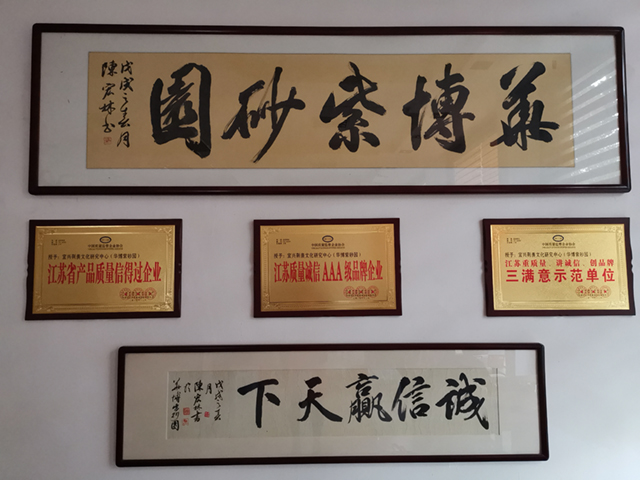 華博紫砂園
戊戌之春月
陳宏林书
授予：宜兴 文化研究中心（华博紫砂园）
江苏省产品质量信得过企业
授予：宜兴 文化研究中心（华博紫砂园）
江苏质量诚信AAA级品牌企业
授予：宜兴 文化研究中心（华博紫砂园）
江苏重质量、讲诚信、创品牌
三满意示范单位
誠信贏天下
戊戌之春
月
陳宏林書
於
華博紫砂園